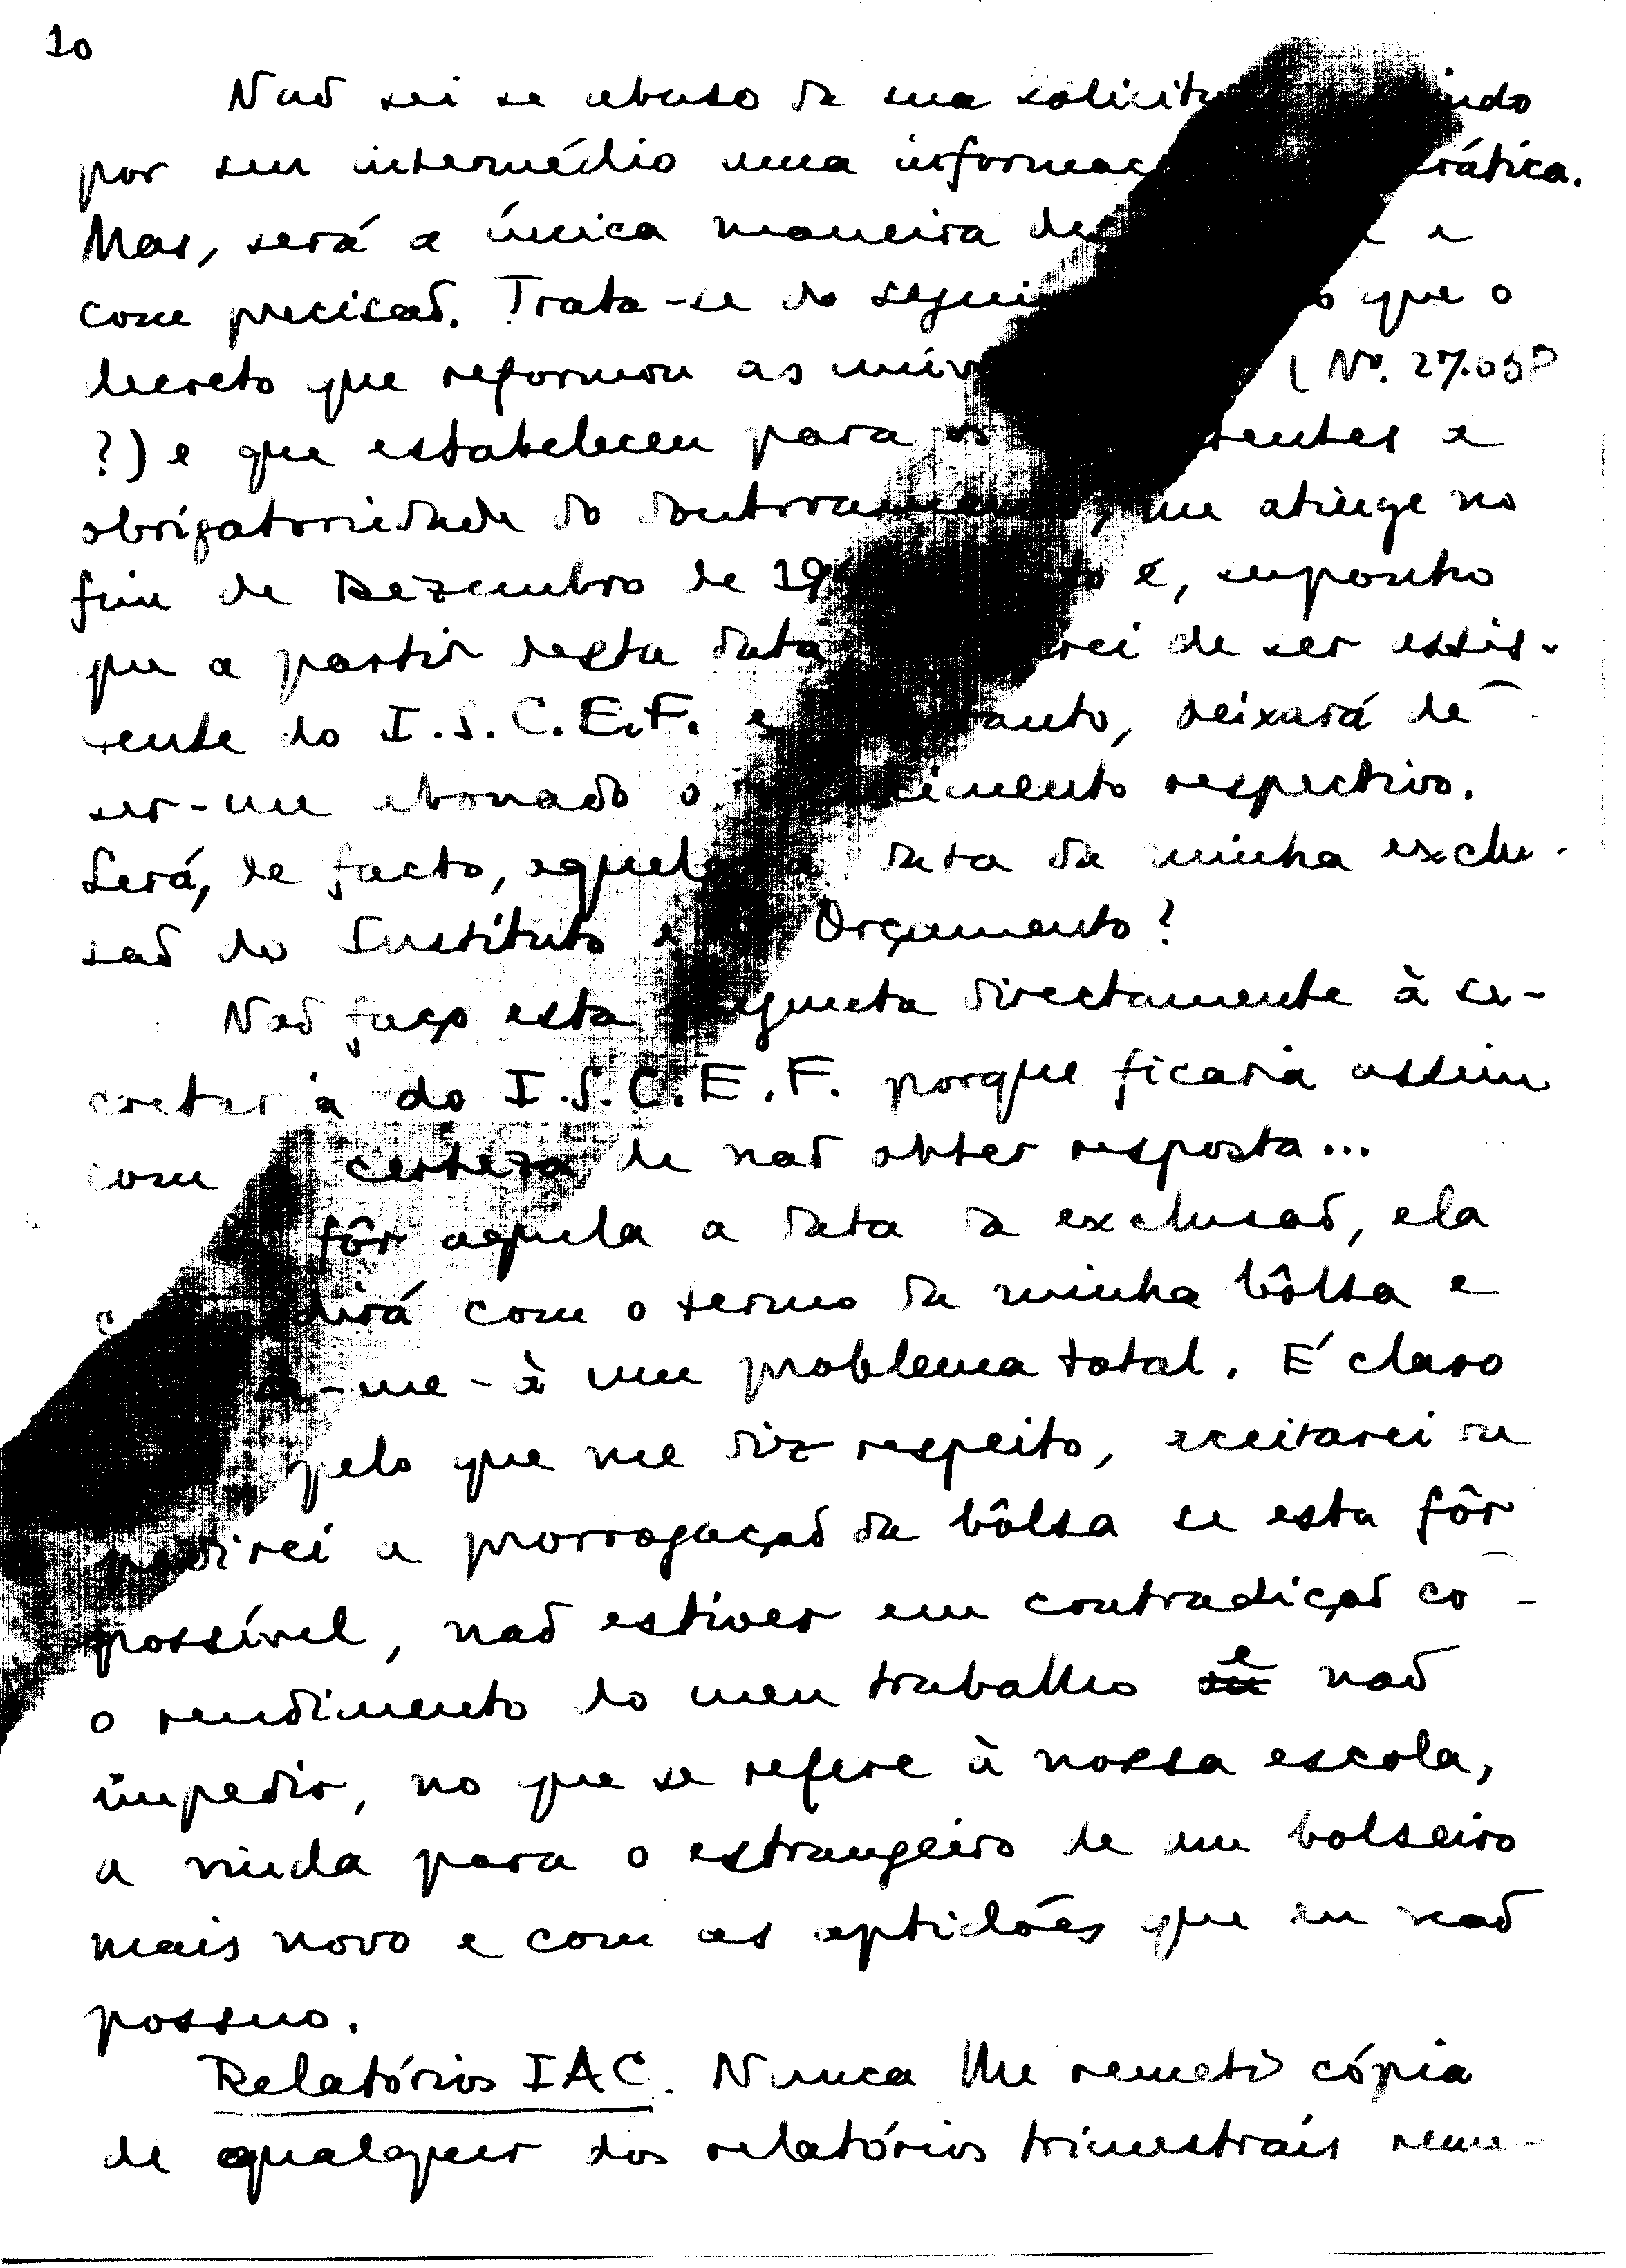 10
Não sei se abuso da sua
por seu intermédio uma
Mas, será a única maneira de e
com precisão. Trata-se do que o
decreto que reformou as (Nº. 27.03?
?) e que estabeleceu para os a
obrigatoriedade do doutoramento, me atinge no
fim de Dezembro de é, suponho
que a partir desta data de ser assis-
tente do I.S.C.E.F. e deixará de
ser-me abonado o respectivo.
Será, de facto, aquela a data da minha exclu-
são do Instituto e Orçamento?
Não faço esta pergunta directamente à se-
cretaria do I.S.C.E.F. porque ficaria assim
com a certeza de não obter resposta...
fôr aquela a data da exclusão, ela
com o termo da minha bôlsa e
-me-à um problema total. É claro
pelo que me diz respeito, aceitarei ou
pedirei a prorrogação da bôlsa se esta fôr
possível, não estiver em contradição co-
o rendimento do meu trabalho e não
impedir, no que se refere à nossa escola,
a vinda para o estrangeiro de um bolseiro
mais novo e com as aptidões que eu não
possuo.
Relatórios IAC. Nunca lhe remeti cópia
de qualquer dos relatórios trimestrais reme-